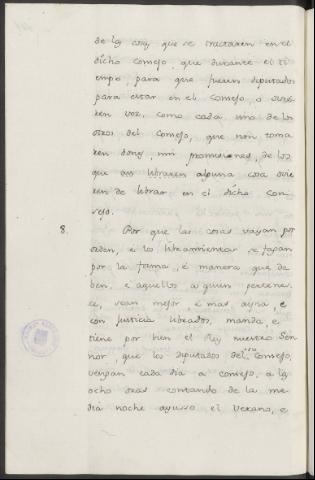 de las cosas que se tractaren en el
dicho consejo, que durante el ti
empo, para que fueren diputados
para estar en el consejo, o ovie
ren voz, como cada uno de los
otros del consejo, que non toma
ren dones, nin promisiones, de los
que ahi libraren alguna cosa ovie
ren de librar en el dicho con
sejo.
8. Por que las cosas vayan por
orden, é los libramientos se fagan
por la forma, é manera que de
ben, e aquellos a quien pertene
ce, sean mejor, é mas ayna, e
con justicia librados, manda, e
tiene por bien el Rey nuestro Sen
nor, que los diputados del su consejo,
vengan cada dia a consejo, a las
ocho oras contando de la me
dia noche ayuso el verano, e